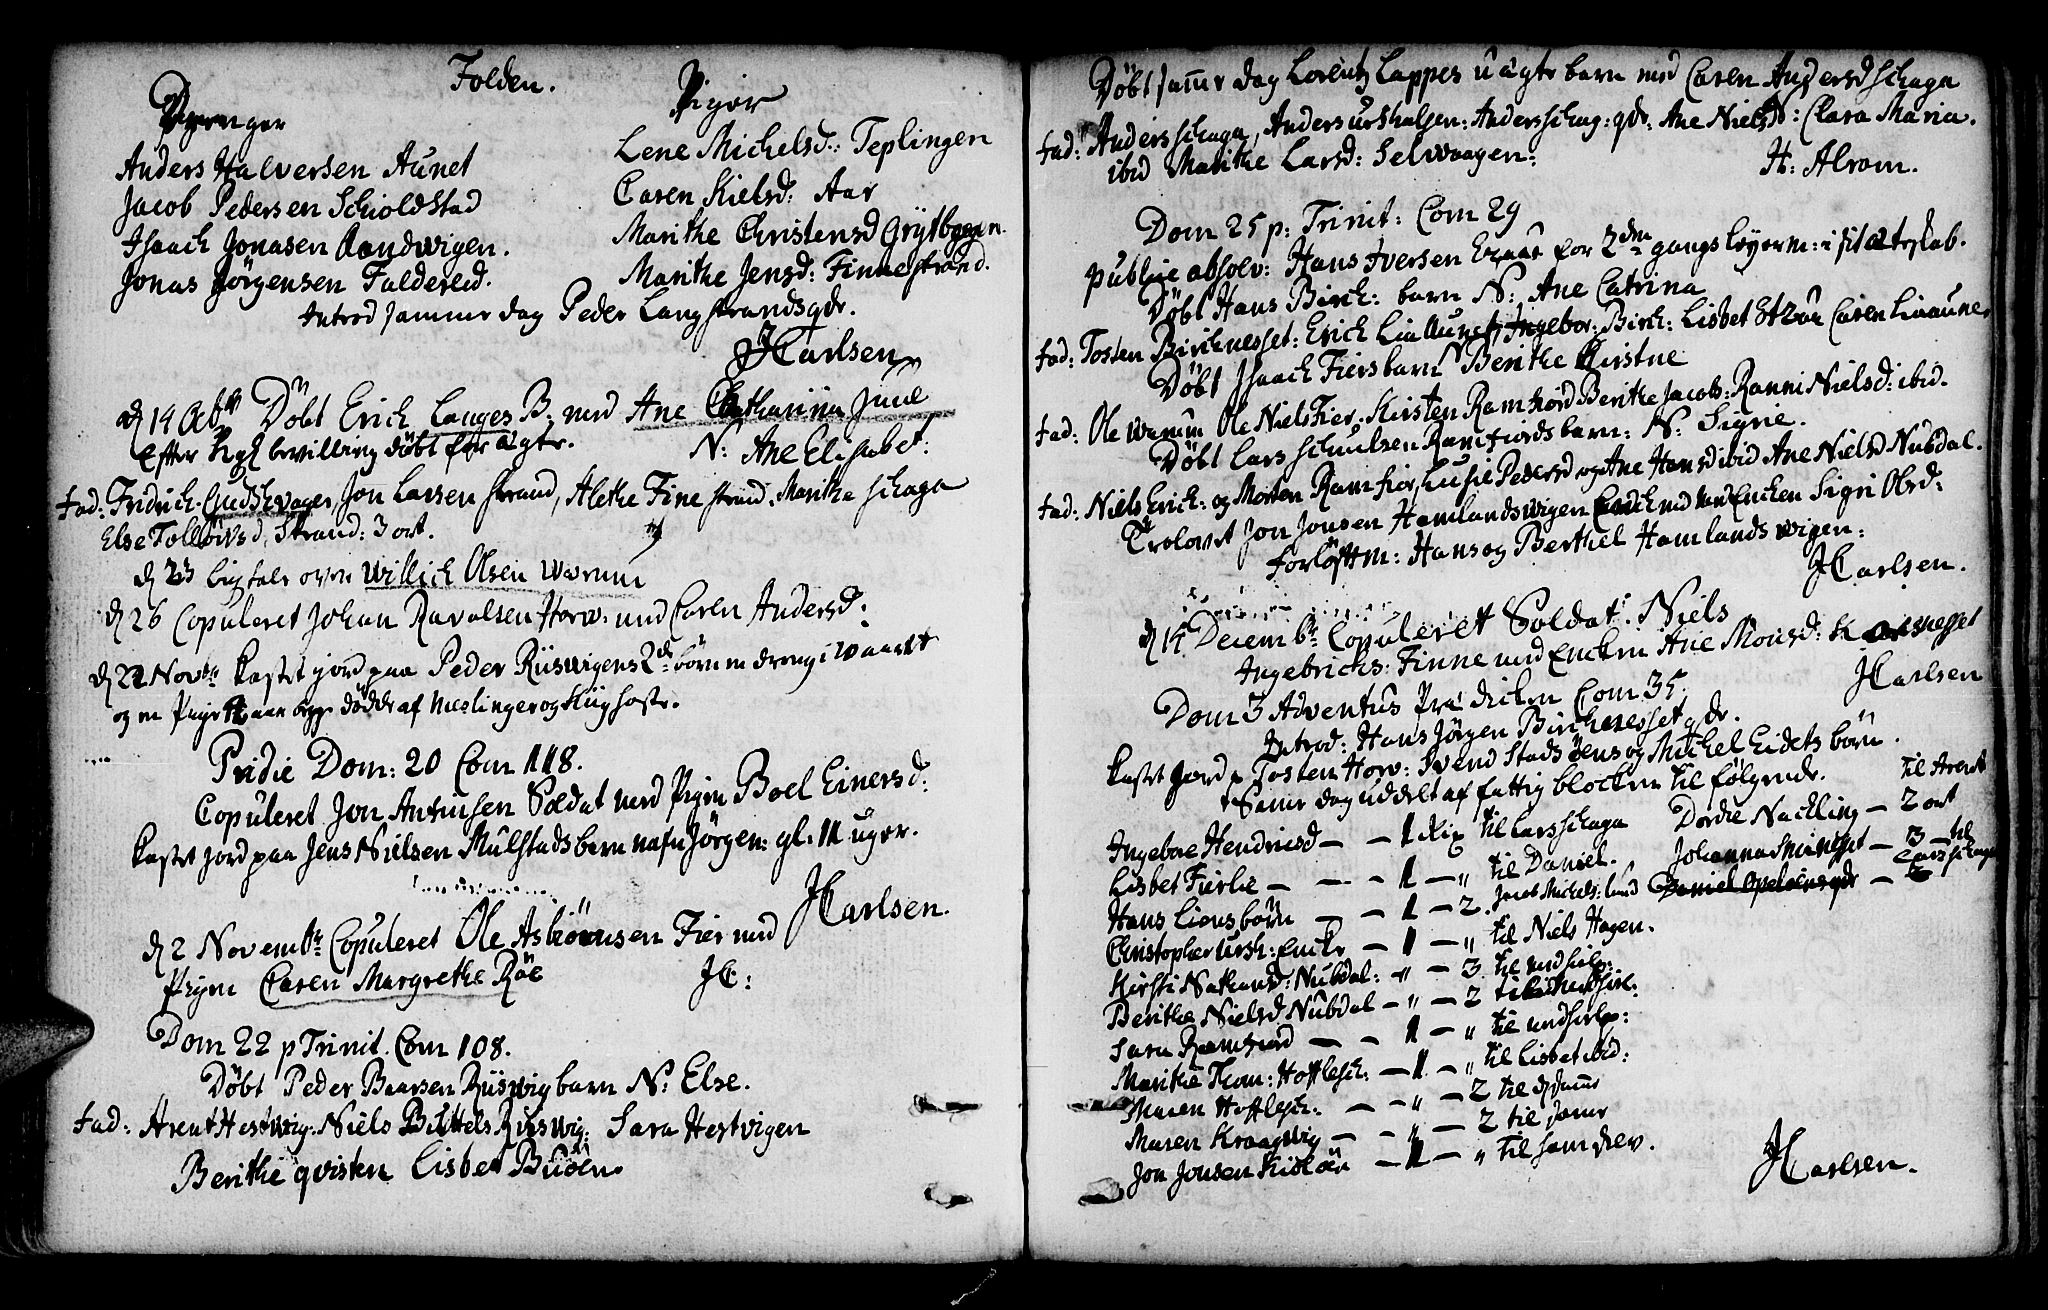 Folden.
Drenger
Piger
Anders Halversen Aunet
Jacob Pedersen Schioldstad
Isaach Jonasen Aandwigen.
Jonas Jörgensen Faldereid.
Lene Michelsd: Teplingen
Caren Kielsd: Aar
Marithe Christensd Grytbogen.
Marithe Jensd: Finnestrand.
Introd samme dag Peder Langstrands qdr.
JCarlsen
d 14 Octbr Döbt Erich Langes B: med Ane Chatharina Juul
Efter Kgl bevilling döbt for ägte.
N: Ane Elisabet:
Fad: Fridrich Gudshvager, Jon Larsen Strand, Alethe Finestrand: Marithe Schage
Else Tollövsd, Strand: 3 ort.
d 23 Ligtale over Willich Olsen Warum
d 26 Copuleret Johan Ravalsen Horw: med Caren Andersd:
d 22 Novbr kastet jord paa Peder Riiswigens 2de börn en dreng i 10 aaret
og en Pige aar begge döde af Meslinger og Kiighoste.
Pridie Dom: 20 Com 118.
Copuleret Jon Antonsen Soldat med Pigen Boel Einersd:
kastet jord paa Jens Nielsen Mulstads barn nafn Jörgen: gl: 11 uger.
JCarlsen.
d 2 Novembr Copuleret Ole Asbiörnsen Fier med
Pigen Caren Margrethe Röe
JC:
Dom 22 p Trinit. Com 108.
Döbt Peder Baarsen Riiswig barn N: Else.
Fad: Arent Hestwig: Niels Bertels Riiswig: Sara Hestvigen
Berithe qvisten Lisbet Buöen
Döbt samme dag Lorentz Lappes uägte barn med Caren Andersd Schaga
Fad: Anders Schaga, Anders Urshalsen: Anders Schag: qdr: Ane Nielsd: Clara Maria.
ibid Marithe Larsd: Selwaagen:
H: Alrom.
Dom 25 p: Trinit: Com 29
publice absolv: Hans Iversen for 2den gangs leyerm: i sit ägteskab.
Döbt Hans Birch: barn N: Ane Catrina
Fad: Tosten Birchnesset: Erich Liaaunet, Ingebor: Birch: Lisbet Caren Liaaune,
Döbt Isaach Fiers barn N Berithe Kirstne
Fad: Ole Warum Ole Niels Fier, Kirsten Ramfiord Berithe Jacobs: Ranni Nielsd: ibid.
Döbt Lars Schuulsen Ramfiords barn: N: Signe.
Fad: Niels Erich: og Morten Ramfior, Lusie Pedersd og Ane Hansd ibid Ane Nielsd Nubdal.
Trolovet Jon Jonsen Hamlandswigen med Encken Sigri Olsd:
Forlöftm: Hans og Berthel Hamlandswigen:
JCarlsen.
d 14 Decembr Copuleret Soldat: Niels
Ingebrichs: Finne med Encken Ane Monsd:
JCarlsen
Dom 3 Adventus Prædicken Com 35.
Introd: Hans Jörgen Birchnesset qdr.
kastet jord p Tosten Horv: Svend Stadsöens og Michel Eidets börn.
Samme dag uddelt af fattig blocken til fölgende.
Ingebor Hendricsd — — 1 Rix til Lars Schaga
Lisbet Fierlie — — — 1 — „ til Daniel.
Hans Liens börn — — 1 — 2. Jacob Michels: lund
Christopher Ursh: Encke — 1 — „ til Niels Hagen.
Kirsti Nathansd: Nubdal: „ — 3 til
Berithe Nielsd Nubdal — „ — 2 til
Sara Ramfiord — — 1 — „ til
Marithe Thom: Hofflesch: — 1 — „ til Lisbet ibid:
Maren Hofflesch: — — „ — 2 til
Maren Kraagwig — — „ — 2 til samme
Jon Jonsen Kidlöen — 1 — „ til ham selv.
Dordie Nackling — 2 ort
til Arent
Johanna — 3 — til
Lars Schaga
JCarlsen.